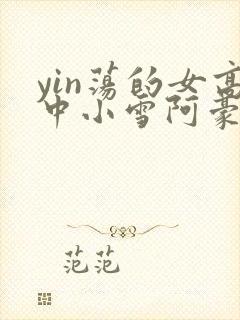 yin荡的女高
中小雪阿豪
范范